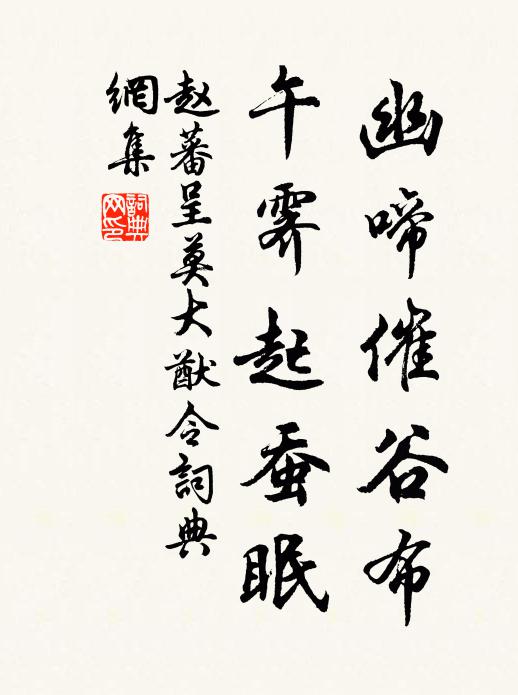 幽啼催谷布
午霁起蚕眠
赵蕃呈莫大猷令詞典
網集
詞典
网印